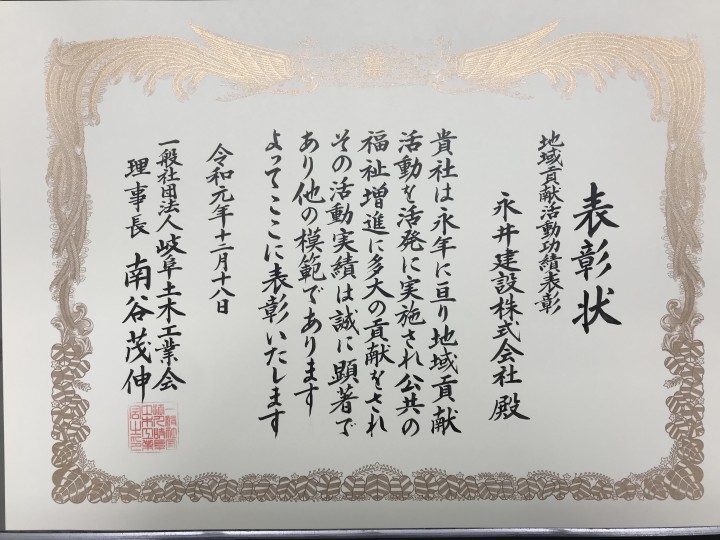 表彰状
地域貢献活動功績表彰
永井建設株式会社殿
貴社は永年に亘り地域貢献
活動を活発に実施され公共の
福祉増進に多大の貢献をされ
その活動実績は誠に顕著で
あり他の模範であります
よってここに表彰いたします
令和元年十二月十八日
一般社団法人岐阜土木工業会
理事長 南谷茂伸